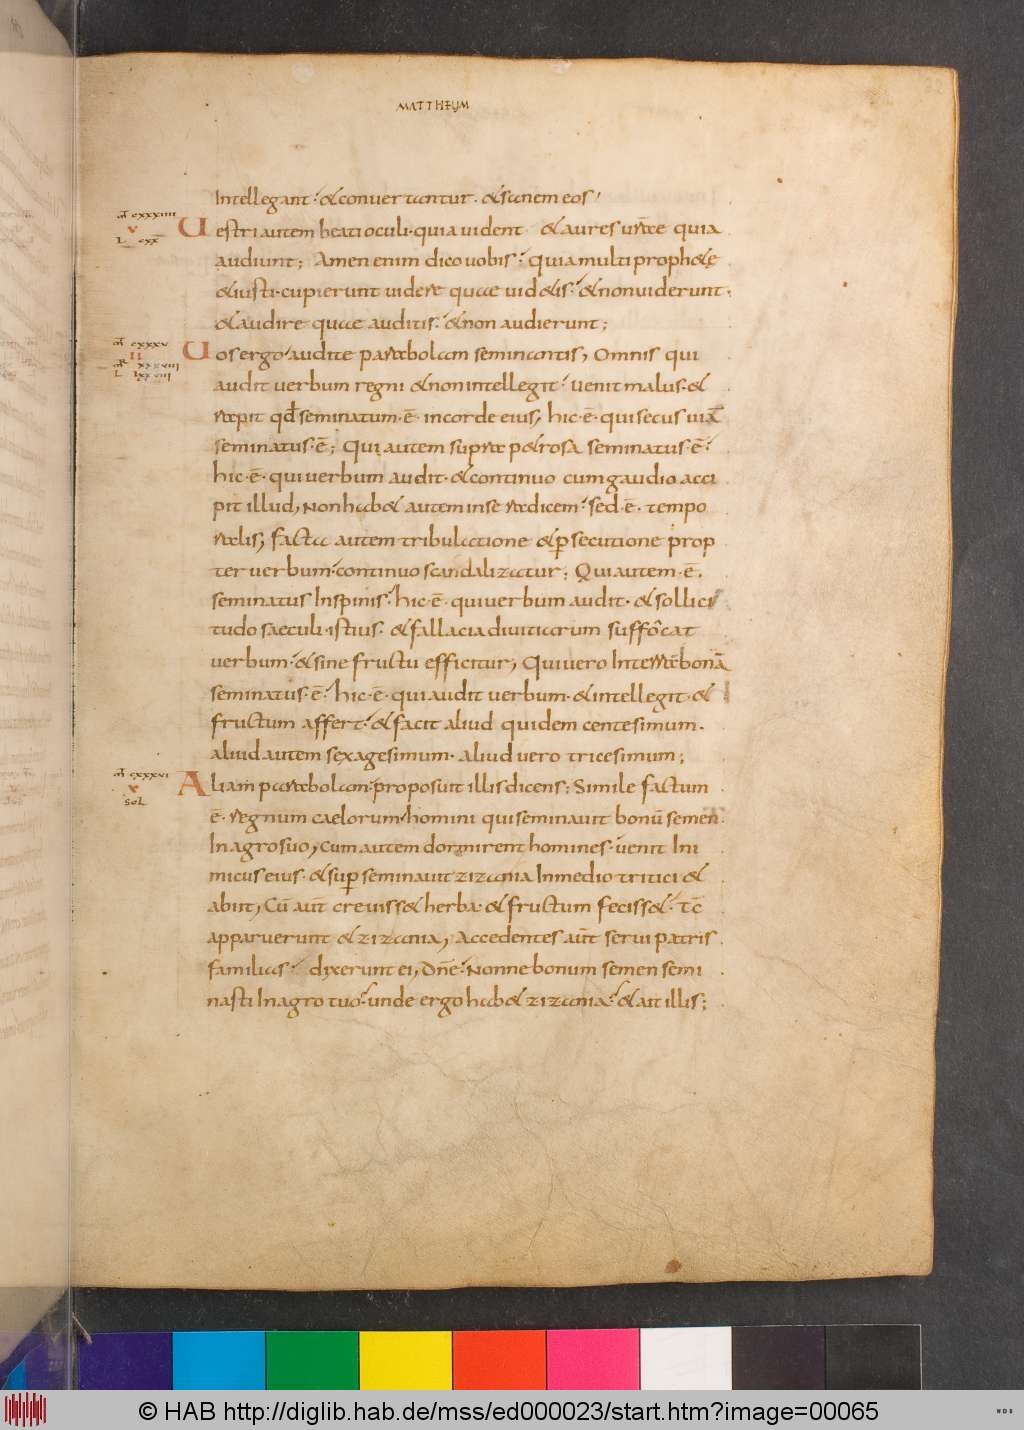 MATTHEUM
Intellegant · & convertantur · & sanem eos ·
mt cxxxiiii
v
L cxx
Uestri autem beati oculi · quia vident & aures urãe quia
audiunt; Amen enim dico vobis · quia multi prophetę
& iusti · cupierunt videre quae videtis · & non viderunt ·
& audire quae auditis · & non audierunt;
mt cxxxv
II
mr xxxviii
L lxxviii
Uos ergo · audite parabolam seminantis, Omnis qui
audit verbum regni & non intellegit · venit malus · &
rapit qđ seminatum · ē · in corde eius, hic · ē · qui secus viã
seminatus · ē; Qui autem supra petrosa seminatus · ē ·
hic · ē · qui verbum audit · & continuo cum gaudio acci
pit illud, Non habet autem in se radicem · sed · ē · tempo
ralis, facta autem tribulatione & p̱secutione prop
ter verbum · continuo scandalizatur; Qui autem · ē ·
seminatus In spinis · hic · ē · qui verbum audit · & sollici
tudo saeculi · istius · & fallacia divitiarum suffocat
verbum · & sine fructu efficitur, Qui vero In terrā bonā
seminatus · ē · hic · ē · qui audit verbum · & intellegit · &
fructum affert · & facit aliud quidem centesimum ·
aliud autem sexagesimum · aliud vero tricesimum;
mt cxxxvi
v
sol
Aliam parabolam · proposuit illis dicens; Simile factum
ē · regnum caelorum · homini qui seminavit bonū semen
In agro suo, Cum autem dormirent homines · venit Ini
micus eius · & sup̱ seminavit zizania In medio tritici &
abiit, Cū aut̄ crevisset herba · & fructum fecisset · tc̄
apparuerunt & zizania, Accedentes aut̄ servi patris
familias · dixerunt ei, Dn̄e · Nonne bonum semen semi
nasti In agro tuo · unde ergo habet zizania · & ait illis;
© HAB http://diglib.hab.de/mss/ed000023/start.htm?image=00065
WDB